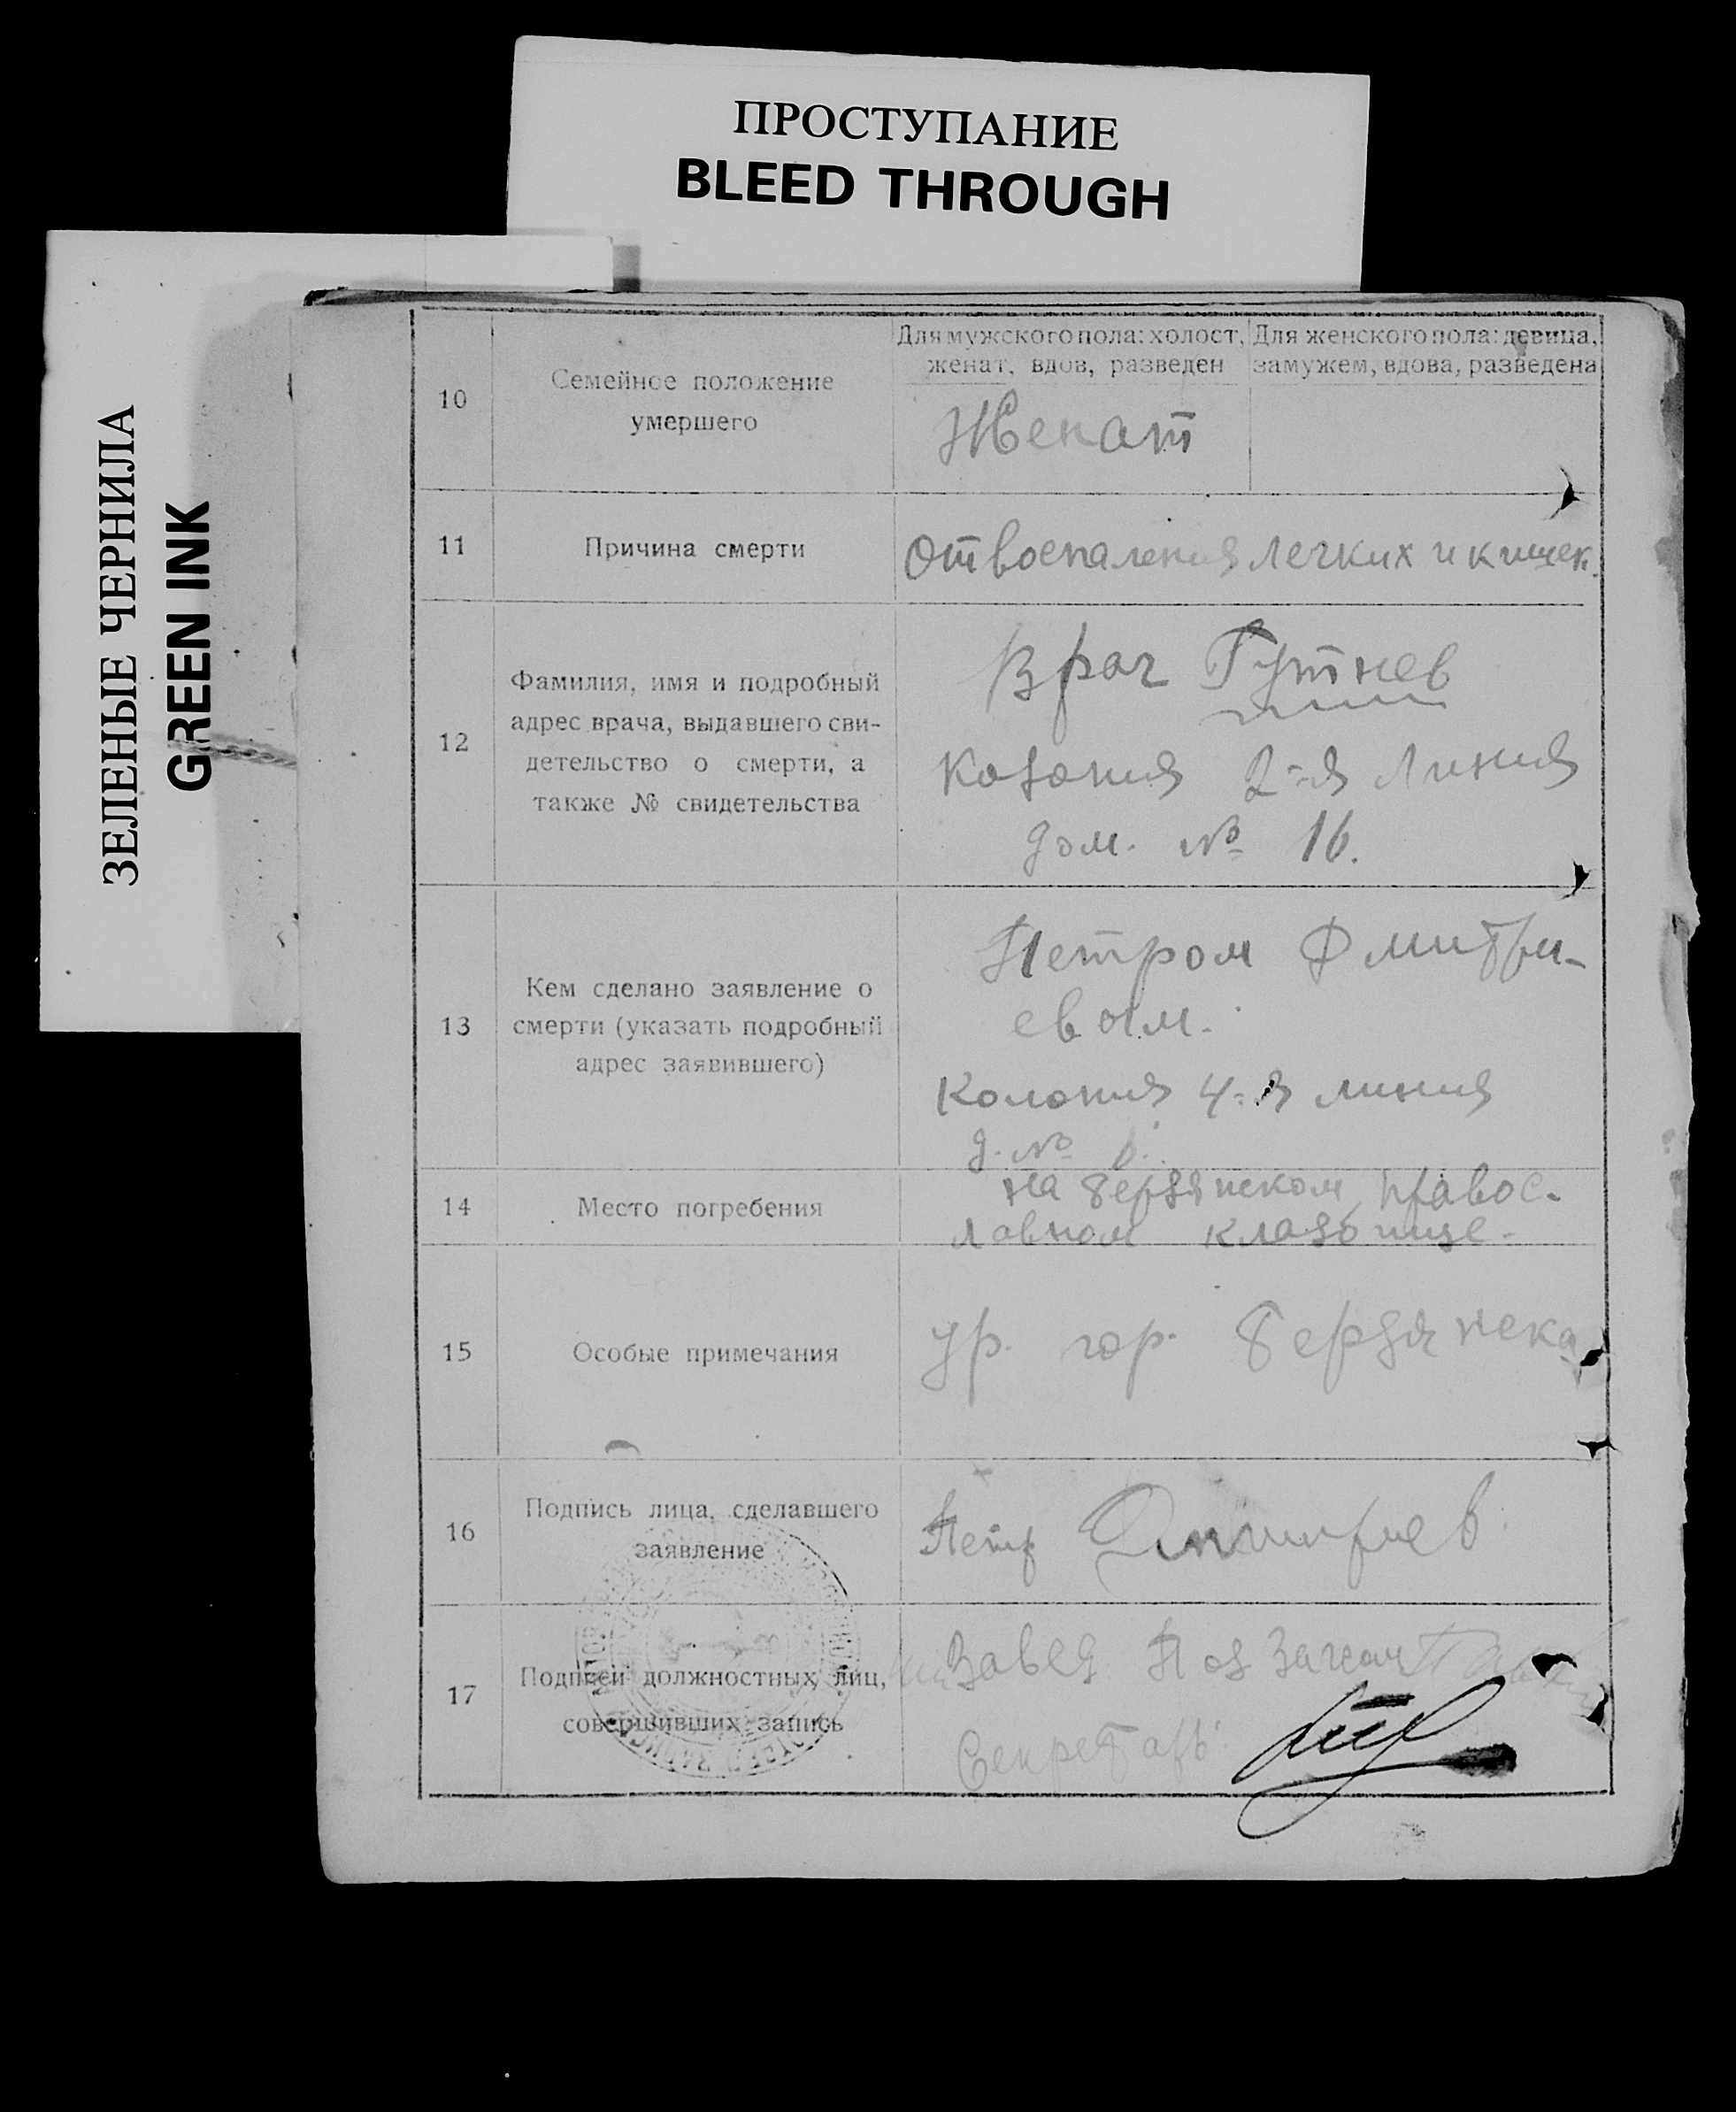 ПРОСТУПАНИЕ
BLEED THROUGH
ЗЕЛЕНЫЕ ЧЕРНИЛА
GREEN INK
10
Семейное положение
умершего
Для мужского пола: холост,
женат, вдов, разведен
Для женского пола: девица,
замужем, вдова, разведена
Женат
11
Причина смерти
От воспаления легких и кишек.
12
Фамилия, имя и подробный
адрес врача, выдавшего сви-
детельство о смерти, а
также № свидетельства
Врач Гутнев
Колония 2-я Линия
дом. № 16.
13
Кем сделано заявление о
смерти (указать подробный
адрес заявившего)
Петром Дмитри-
евым.
Колония 4-я линия
д. №
14
Место погребения
на бердянском правос-
лавном кладбище.
15
Особые примечания
ур. гор. Бердянска
16
Подпись лица, сделавшего
заявление
Петр Дмитриев
17
Подписи должностных лиц,
совершивших запись
Завед
Секретарь